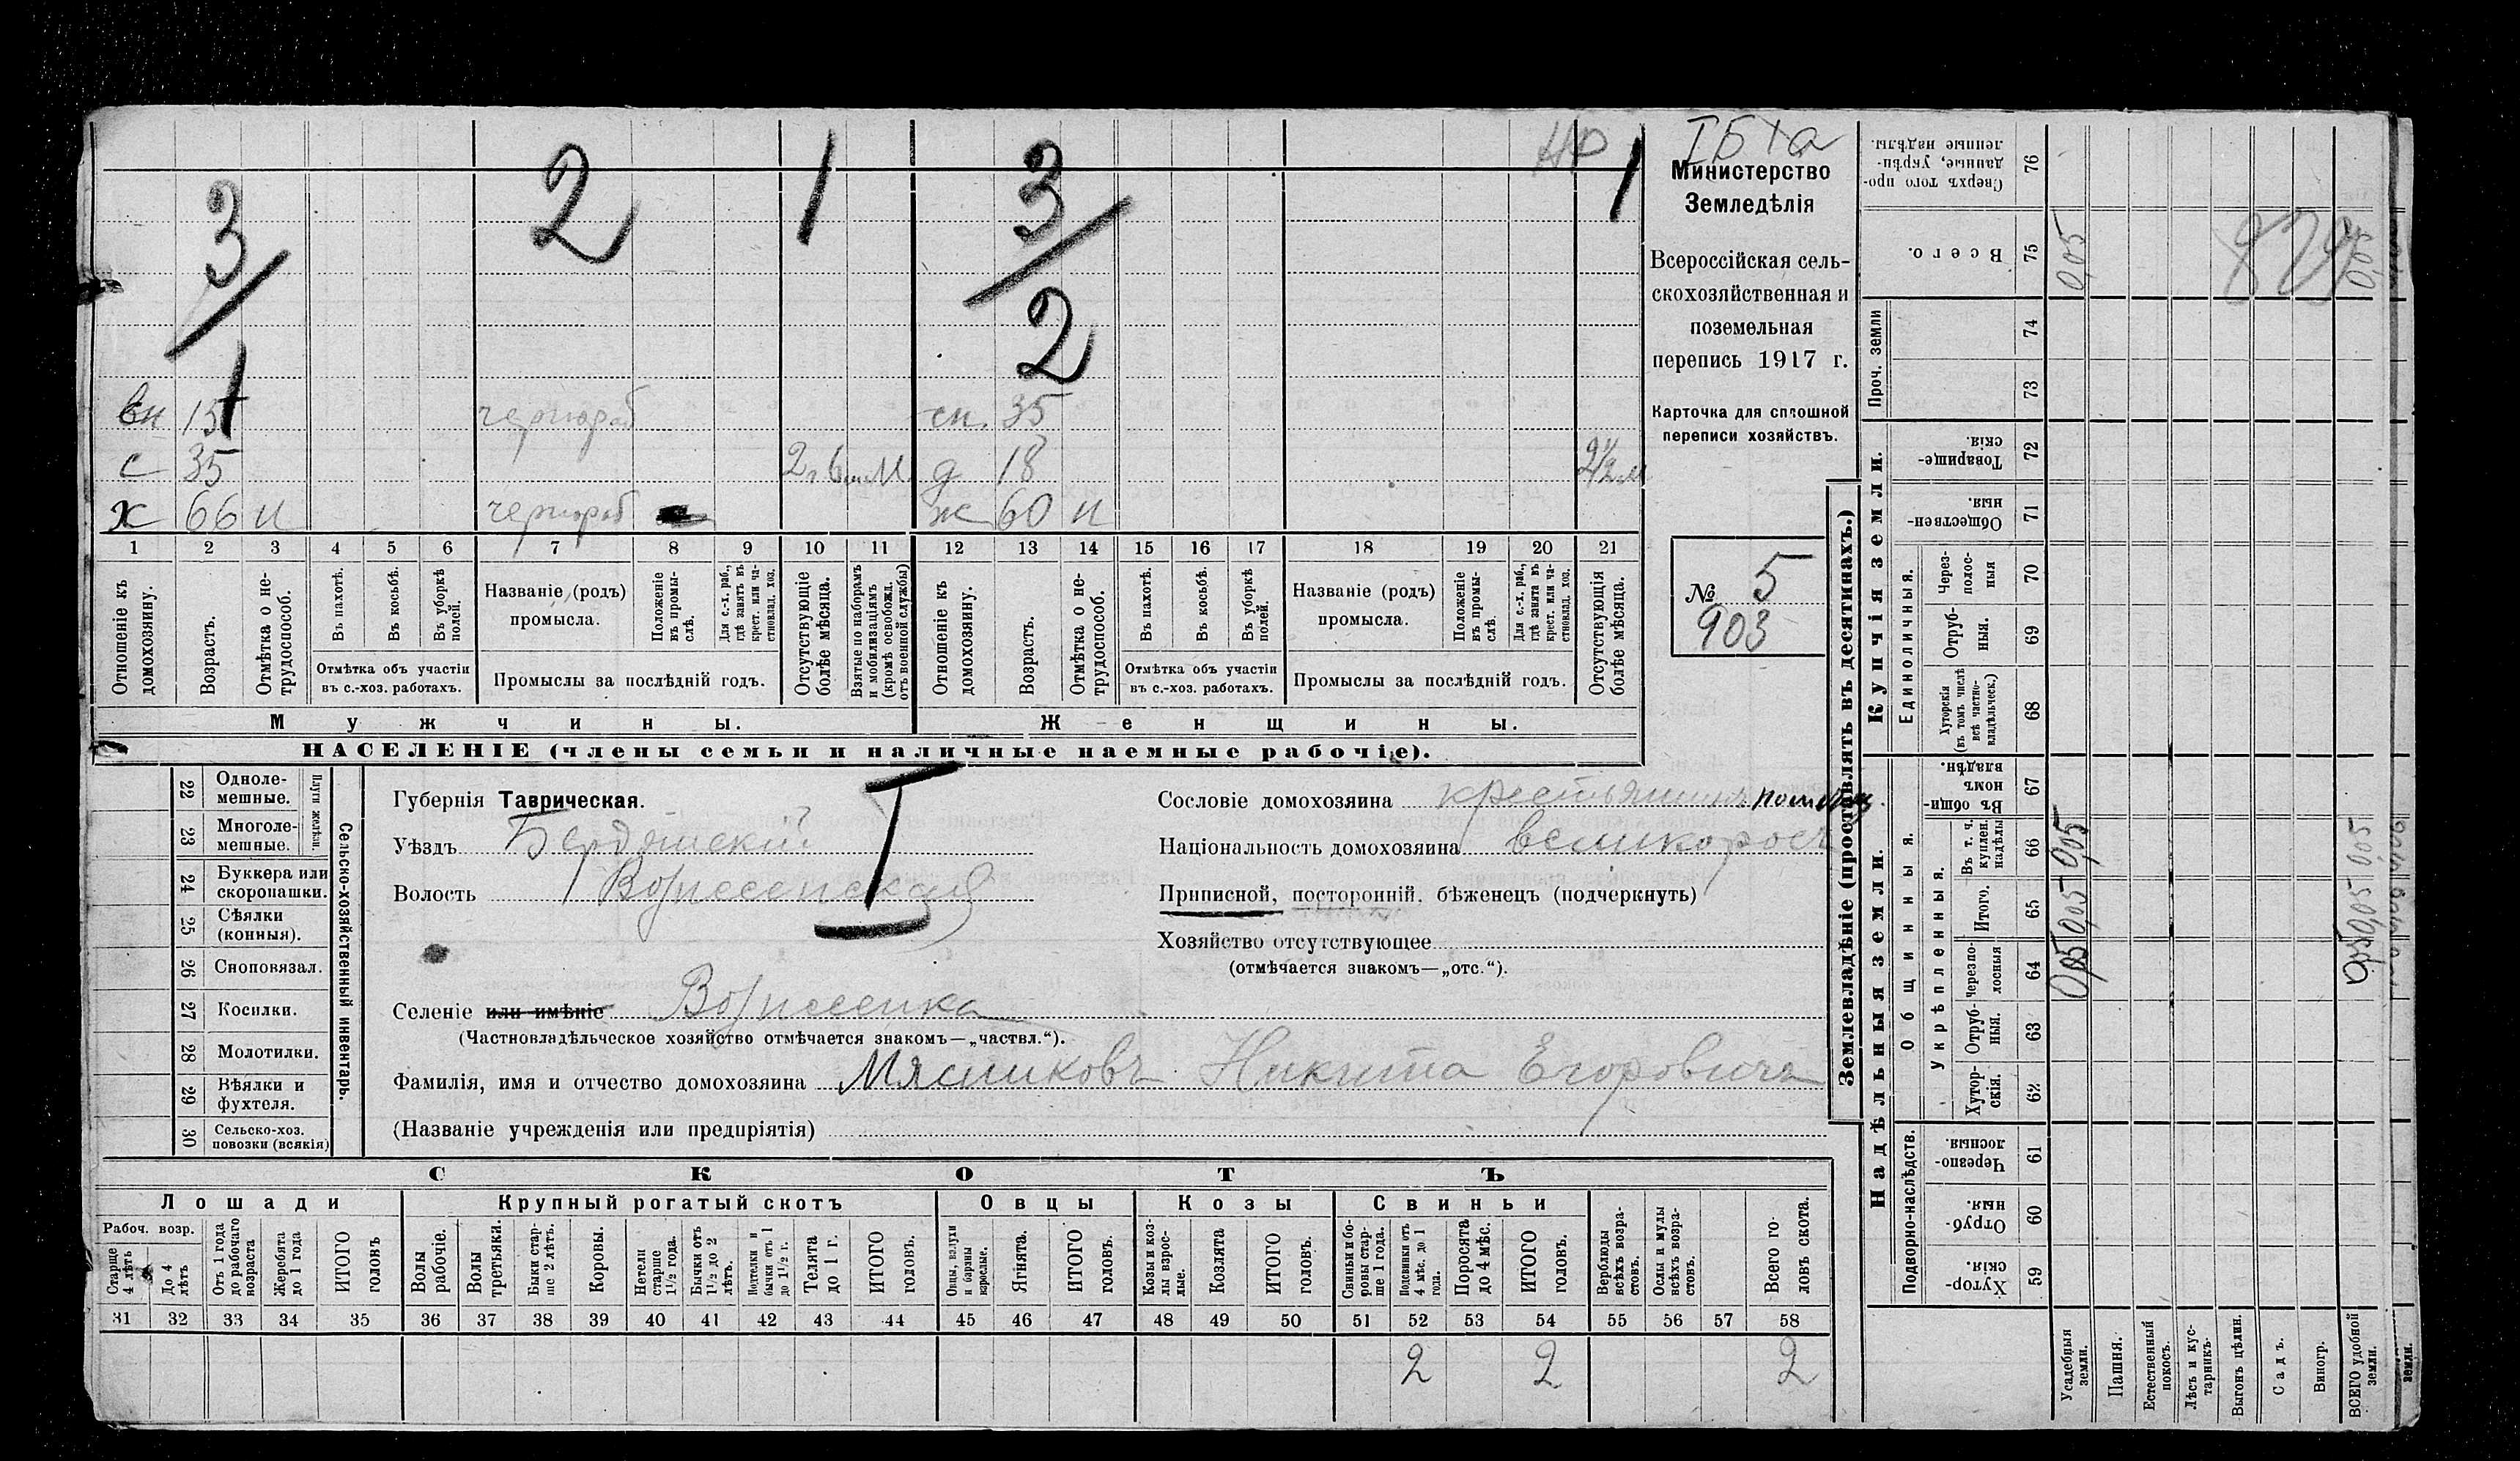 3/1
2
1
3/2
1
I Б 1 а
Министерство
Земледѣлія
Всероссійская сель-
скохозяйственная и
поземельная
перепись 1917 г.
Карточка для сплошной
переписи хозяйствъ.
№ 5
903
вн 15 чернораб сн. 35
с 35 д 18
х 66 н чернораб ж 60 н
1 2 3 4 5 6 7 8 9 10 11 12 13 14 15 16 17 18 19 20 21
Отношеніе къ домохозяину.
Возрастъ.
Отмѣтка о не-трудоспособ.
Въ пахотѣ.
Въ косьбѣ.
Въ уборкѣ полей.
Отмѣтка объ участіи
въ с.-хоз. работахъ.
Названіе (родъ)
промысла.
Положеніе въ промы-слѣ.
Для с.-х. раб., гдѣ занятъ въ крест. или ча-стновлад. хоз.
Промыслы за послѣдній годъ.
Отсутствующіе болѣе мѣсяца.
Взятые по наборамъ и мобилизаціямъ (кромѣ освобожд. отъ военной службы)
Отношеніе къ домохозяину.
Возрастъ.
Отмѣтка о не-трудоспособ.
Въ пахотѣ.
Въ косьбѣ.
Въ уборкѣ полей.
Отмѣтка объ участіи
въ с.-хоз. работахъ.
Названіе (родъ)
промысла.
Положеніе въ промы-слѣ.
Для с.-х. раб., гдѣ занята въ крест. или ча-стновлад. хоз.
Промыслы за послѣдній годъ.
Отсутствующія болѣе мѣсяца.
Мужчины. Женщины.
НАСЕЛЕНІЕ (члены семьи и наличные наемные рабочіе).
22 Одноле-мешные.
23 Многоле-мешные.
Плуги желѣзн.
24 Буккера или скоропашки.
25 Сѣялки (конныя).
26 Сноповязал.
27 Косилки.
28 Молотилки.
29 Вѣялки и фухтеля.
30 Сельско-хоз. повозки (всякія)
Сельско-хозяйственный инвентарь.
Губернія Таврическая.
I
Уѣздъ Бердянскій
Волость Вознесенская
Сословіе домохозяина крестьянинъ
Національность домохозяина великороссъ
Приписной, посторонній, бѣженецъ (подчеркнуть)
Хозяйство отсутствующее
(отмѣчается знакомъ—„отс.“).
Селеніе или имѣніе Вознесенка
(Частновладѣльческое хозяйство отмѣчается знакомъ—„частвл.“).
Фамилія, имя и отчество домохозяина Мясниковъ Никита Егоровичъ
(Названіе учрежденія или предпріятія)
СКОТЪ
Лошади Крупный рогатый скотъ Овцы Козы Свиньи
Рабоч. возр.
Старше 4 лѣтъ
До 4 лѣтъ
Отъ 1 года до рабочаго возраста
Жеребята до 1 года
ИТОГО головъ
Волы рабочіе.
Волы третьяки.
Быки стар-ше 2 лѣтъ.
Коровы.
Нетели старше 1½ года.
Бычки отъ 1½ до 2 лѣтъ.
Подтелки и бычки отъ 1 до 1½ г.
Телята до 1 г.
ИТОГО головъ.
Овцы, валухи и бараны взрослые.
Ягнята.
ИТОГО головъ.
Козы и коз-лы взрос-лые.
Козлята
ИТОГО головъ.
Свиньи и бо-ровы стар-ше 1 года.
Подсвинки отъ 4 мѣс. до 1 года.
Поросята до 4 мѣс.
ИТОГО головъ.
Верблюды всѣхъ возра-стовъ.
Ослы и мулы всѣхъ возра-стовъ.
Всего го-ловъ скота.
31 32 33 34 35 36 37 38 39 40 41 42 43 44 45 46 47 48 49 50 51 52 53 54 55 56 57 58
2 2 2
Землевладѣніе (проставлять въ десятинахъ.)
Надѣльныя земли.
Купчія земли.
Проч. земли
Подворно-наслѣдств.
Общинныя.
Укрѣпленныя.
Единоличныя.
Сверхъ того про-данные, укрѣп-ленные надѣлы. 76
Всего. 75 0,05 0,05
74
73
Товарище-скія. 72
Обществен-ныя 71
Через-полос-ныя 70
Отруб-ныя. 69
Хуторскія (въ томъ числѣ всѣ частно-владѣльческ.) 68
Въ общи-номъ владѣн. 67
Въ т. ч. куплен. надѣлы 66 0,05 0,05
Итого. 65 0,05 0,05
Черезпо-лосныя 64 0,05 0,05
Отруб-ныя. 63
Хутор-скія. 62
Черезпо-лосныя 61
Отруб-ныя. 60
Хутор-скія. 59
Усадебныя земли.
Пашня.
Естественный покосъ.
Лѣсъ и кус-тарникъ.
Выгонъ цѣлин.
Садъ.
Виногр.
ВСЕГО удобной земли.
земли.